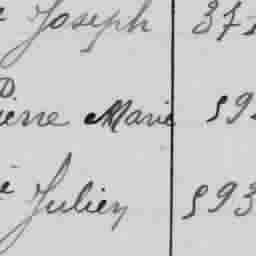 Joseph 37
Pierre Marie 59
Julien 593